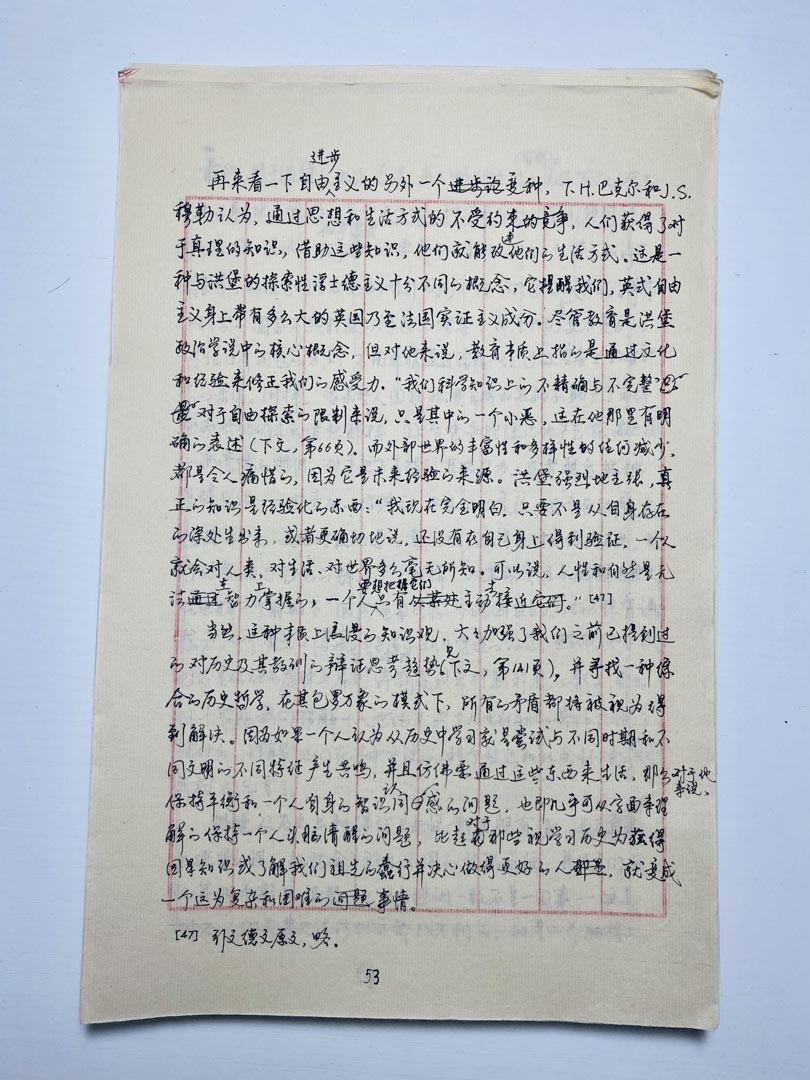 进步
再来看一下自由主义的另外一个进步论变种，T.H.巴克尔和J.S.
穆勒认为，通过思想和生活方式的不受约束的竞争，人们获得了对
于真理的知识，借助这些知识，他们就能改进他们的生活方式。这是一
种与洪堡的探索性浮士德主义十分不同的概念，它提醒我们，英式自由
主义身上带有多么大的英国乃至法国实证主义成分。尽管教育是洪堡
政治学说中的核心概念，但对他来说，教育本质上指的是通过文化
和经验来修正我们的感受力。“我们科学知识上的不精确与不完整”
对于自由探索的限制来说，只是其中的一个小恶，这在他那里有明
确的表述（下文，第66页）。而外部世界的丰富性和多样性的任何减少，
都是令人痛惜的，因为它是未来经验的来源。洪堡强烈地主张，真
正的知识是经验化的东西：“我现在完全明白，只要不是从自身存在
的深处生出来，或者更确切地说，还没有在自己身上得到验证，一个人
就会对人类、对生活、对世界多么毫无所知。可以说，人性和自然是无
法通过智力掌握的，一个人要想把握它们只有从某处主动接近它们。”[47]
当然，这种本质上浪漫的知识观，大大加强了我们之前已提到过
的对历史及其教训的辩证思考趋势（见下文，第141页），并寻找一种综
合的历史哲学，在其包罗万象的模式下，所有的矛盾都将被视为得
到解决。因为如果一个人认为从历史中学习就是尝试与不同时期和不
同文明的不同特征产生共鸣，并且仿佛要通过这些东西来生活，那么对于他来说，
保持平衡和一个人自身的认同感的问题，也即几乎可从字面来理
解的保持一个人头脑清醒的问题，比起对于那些视学习历史为获得
因果知识或了解我们祖先的蠢行并决心做得更好的人那是，就变成
一个远为复杂和困难的问题事情。
[47] 引文德文原文，略。
53